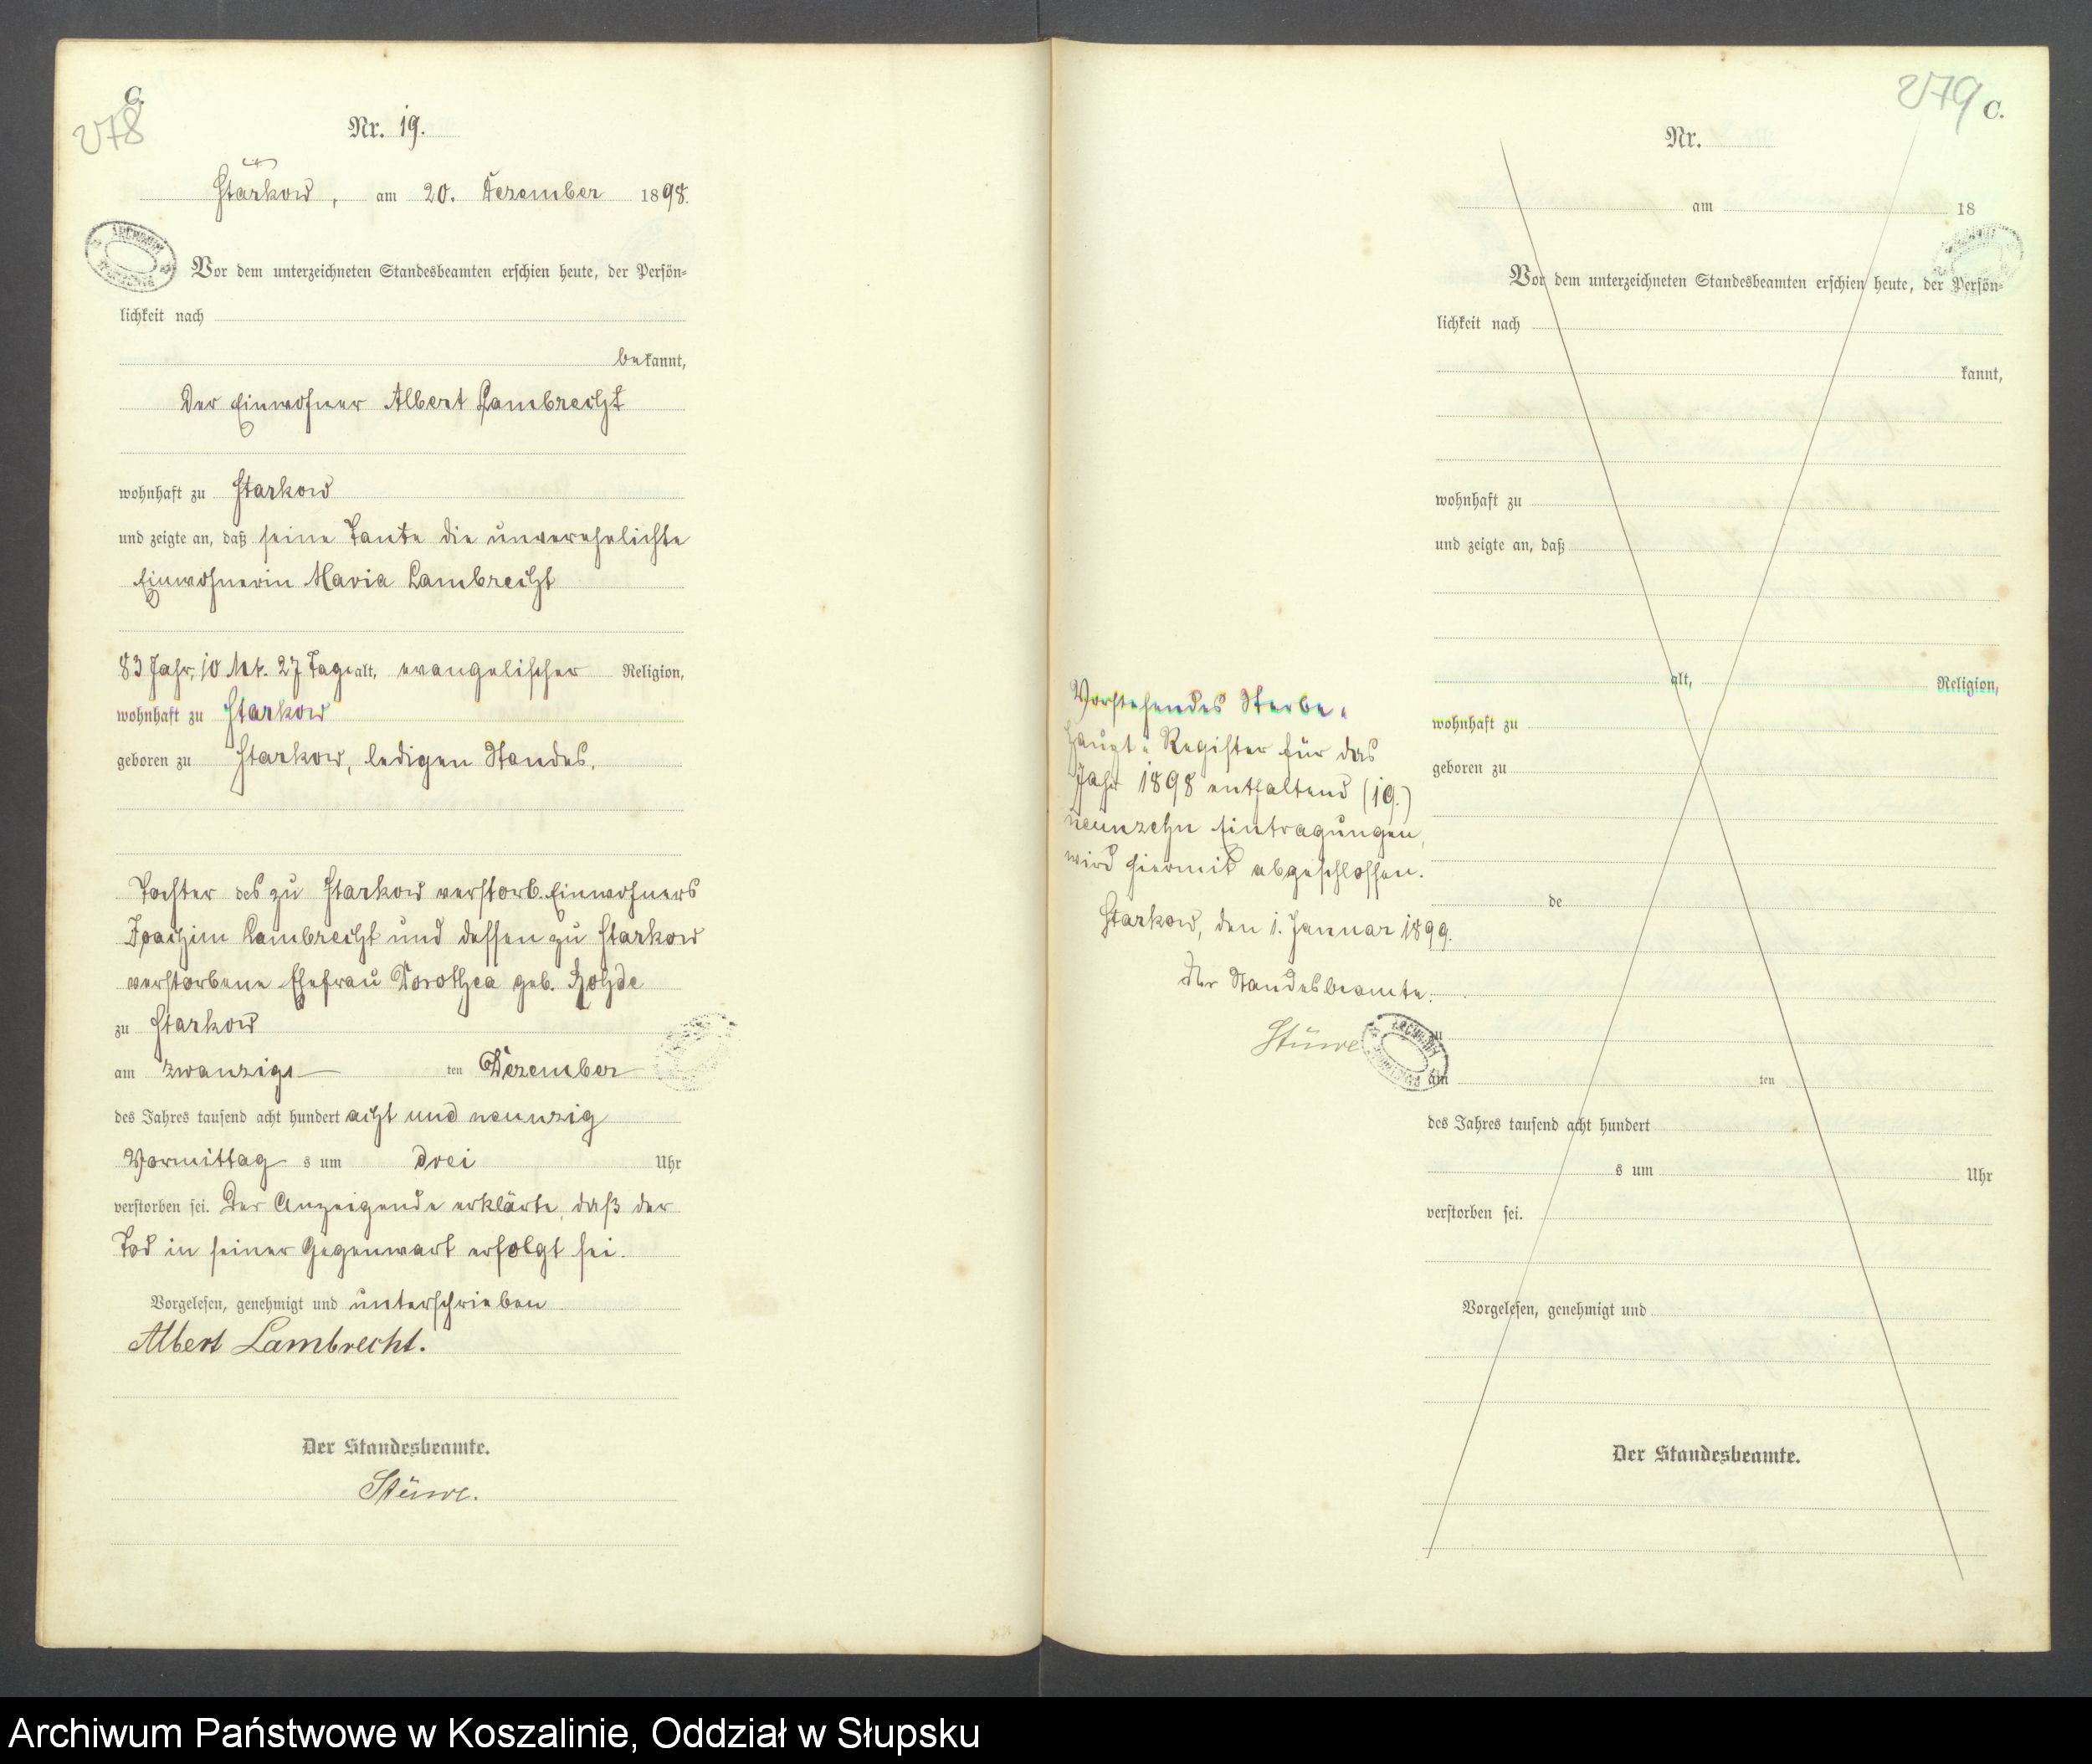 C.
278
Nr. 19.
Starkow, am 20. Dezember 1898.
Vor dem unterzeichneten Standesbeamten erschien heute, der Persön-
lichkeit nach
bekannt,
Der Einwohner Albert Lambrecht
wohnhaft zu Starkow
und zeigte an, daß seine Tante die unverehelichte
Einwohnerin Maria Lambrecht
83 Jahr, 10 Mt. 27 Tage alt, evangelischer Religion,
wohnhaft zu Starkow
geboren zu Starkow, ledigen Standes.
Tochter des zu Starkow verstorb. Einwohners
Joachim Lambrecht und dessen zu Starkow
verstorbene Ehefrau Dorothea geb.
zu Starkow
am zwanzigs ten Dezember
des Jahres tausend acht hundert acht und neunzig
Vormittag s um drei Uhr
verstorben sei. Der Anzeigende erklärte, daß der
Tod in seiner Gegenwart erfolgt sei.
Vorgelesen, genehmigt und unterschrieben
Albert Lambrecht.
Der Standesbeamte.
Stüwe.
279
C.
Nr.
am 18
Vor dem unterzeichneten Standesbeamten erschien heute, der Persön-
lichkeit nach
kannt,
wohnhaft zu
und zeigte an, daß
alt, Religion,
wohnhaft zu
geboren zu
de
zu
am ten
des Jahres tausend acht hundert
s um Uhr
verstorben sei.
Vorgelesen, genehmigt und
Der Standesbeamte.
Vorstehendes Sterbe-
Haupt-Register für das
Jahr 1898 enthaltend (19.)
neunzehn Eintragungen,
wird hiermit abgeschlossen.
Starkow, den 1. Januar 1899.
Der Standesbeamte.
Stüwe
Archiwum Państwowe w Koszalinie, Oddział w Słupsku